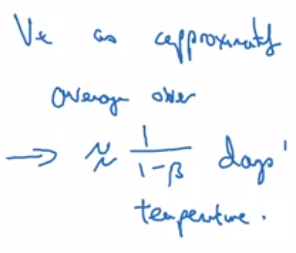 Vt as approximately
average over
→ ≈ 1/(1-β) days'
temperature.